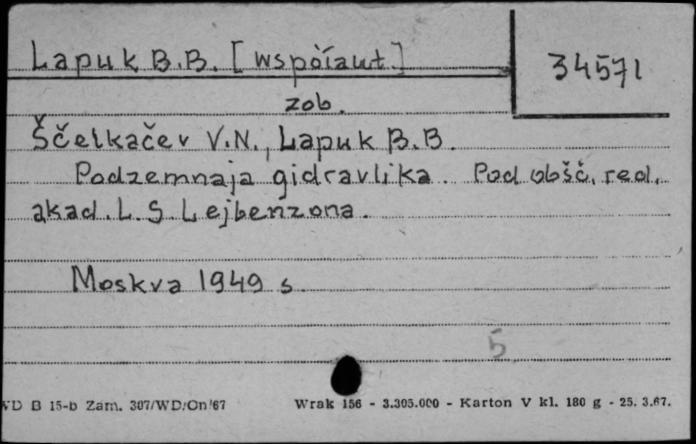 Lapuk B.B. [współaut.]
34571
zob.
Ščelkačev V.N., Lapuk B.B.
Podzemnaja gidravlika. Pod obšč. red.
akad. L. S. Lejbenzona.
Moskva 1949 s.
5
WD B 15-b Zam. 307/WD/On/67 Wrak 156 - 3.305.000 - Karton V kl. 180 g - 25. 3.67.